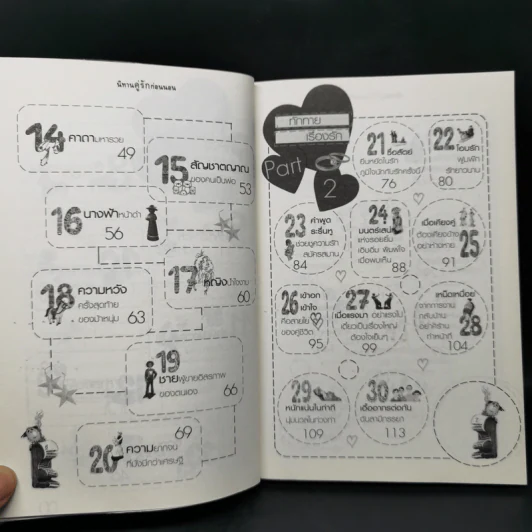 นิทานคู่รักก่อนนอน
14 คาถามหารวย
49
15 สัญชาตญาณ
ของคนเป็นพ่อ 53
16 นางฟ้าหน้าดำ
56
17 หญิงบ้าใจงาม
60
18 ความหวัง
ครั้งสุดท้าย
ของป้าหนุ่ม 63
19
ชายผู้ขายอิสรภาพ
ของตนเอง 66
69
20 ความยากจน
ที่มั่งมีกว่าเศรษฐี
ทักทาย
เรื่องรัก
Part
2
21 ซื่อสัตย์
ยืนหยัดในรัก
ภูมิใจนักกับรักครั้งนี้
76
22 โอบรัก
ฟูมฟัก
รักยาวนาน
80
23 คำพูด
ระรื่นหู
ช่วยชูความรัก
สมัครสมาน
84
24
มนตร์เสน่ห์
แห่งรอยยิ้ม
เติมอิ่ม พิมพ์ใจ
เมื่อพบเห็น
88
เมื่อเคียงคู่
ต้องเคียงข้าง
อย่าห่างหาย 25
91
26 เข้าอก
เข้าใจ
คือสายใย
ของคู่ชีวิต
95
27
เมื่อแรงมา อย่าแรงไป
เดี๋ยวเป็นเรื่องใหญ่
ต้องใจเย็นๆ
99
เหน็ดเหนื่อย
จากการงาน
กลับบ้าน
อย่าใส่อารมณ์ 28
104
29
หนักแน่นในท่าที
นุ่มนวลในท่วงท่า
109
30
เอื้ออาทรต่อกัน
ฉันสามีภรรยา
113